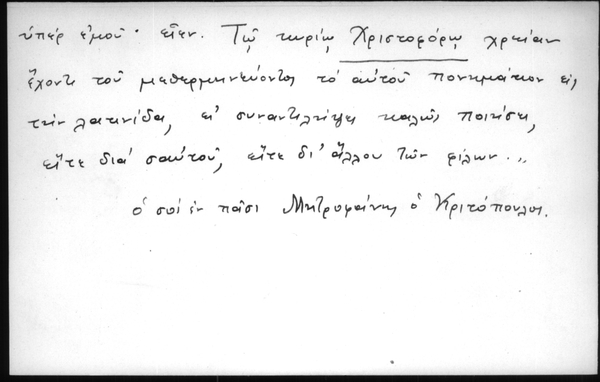 ὑπὲρ ἐμοῦ· εἶεν. Τῷ κυρίῳ Χριστοφόρῳ χρείαν
ἔχοντι τοῦ μεθερμηνεύοντος τὸ αὑτοῦ πονημάτιον εἰς
τὴν λατινίδα, εἰ συναντιλήψῃ καλῶς ποιήσεις,
εἴτε διὰ σαυτοῦ, εἴτε δι' ἄλλου τῶν φίλων...
ὁ σοὶ ἐν πᾶσι Μητροφάνης ὁ Κριτόπουλος.